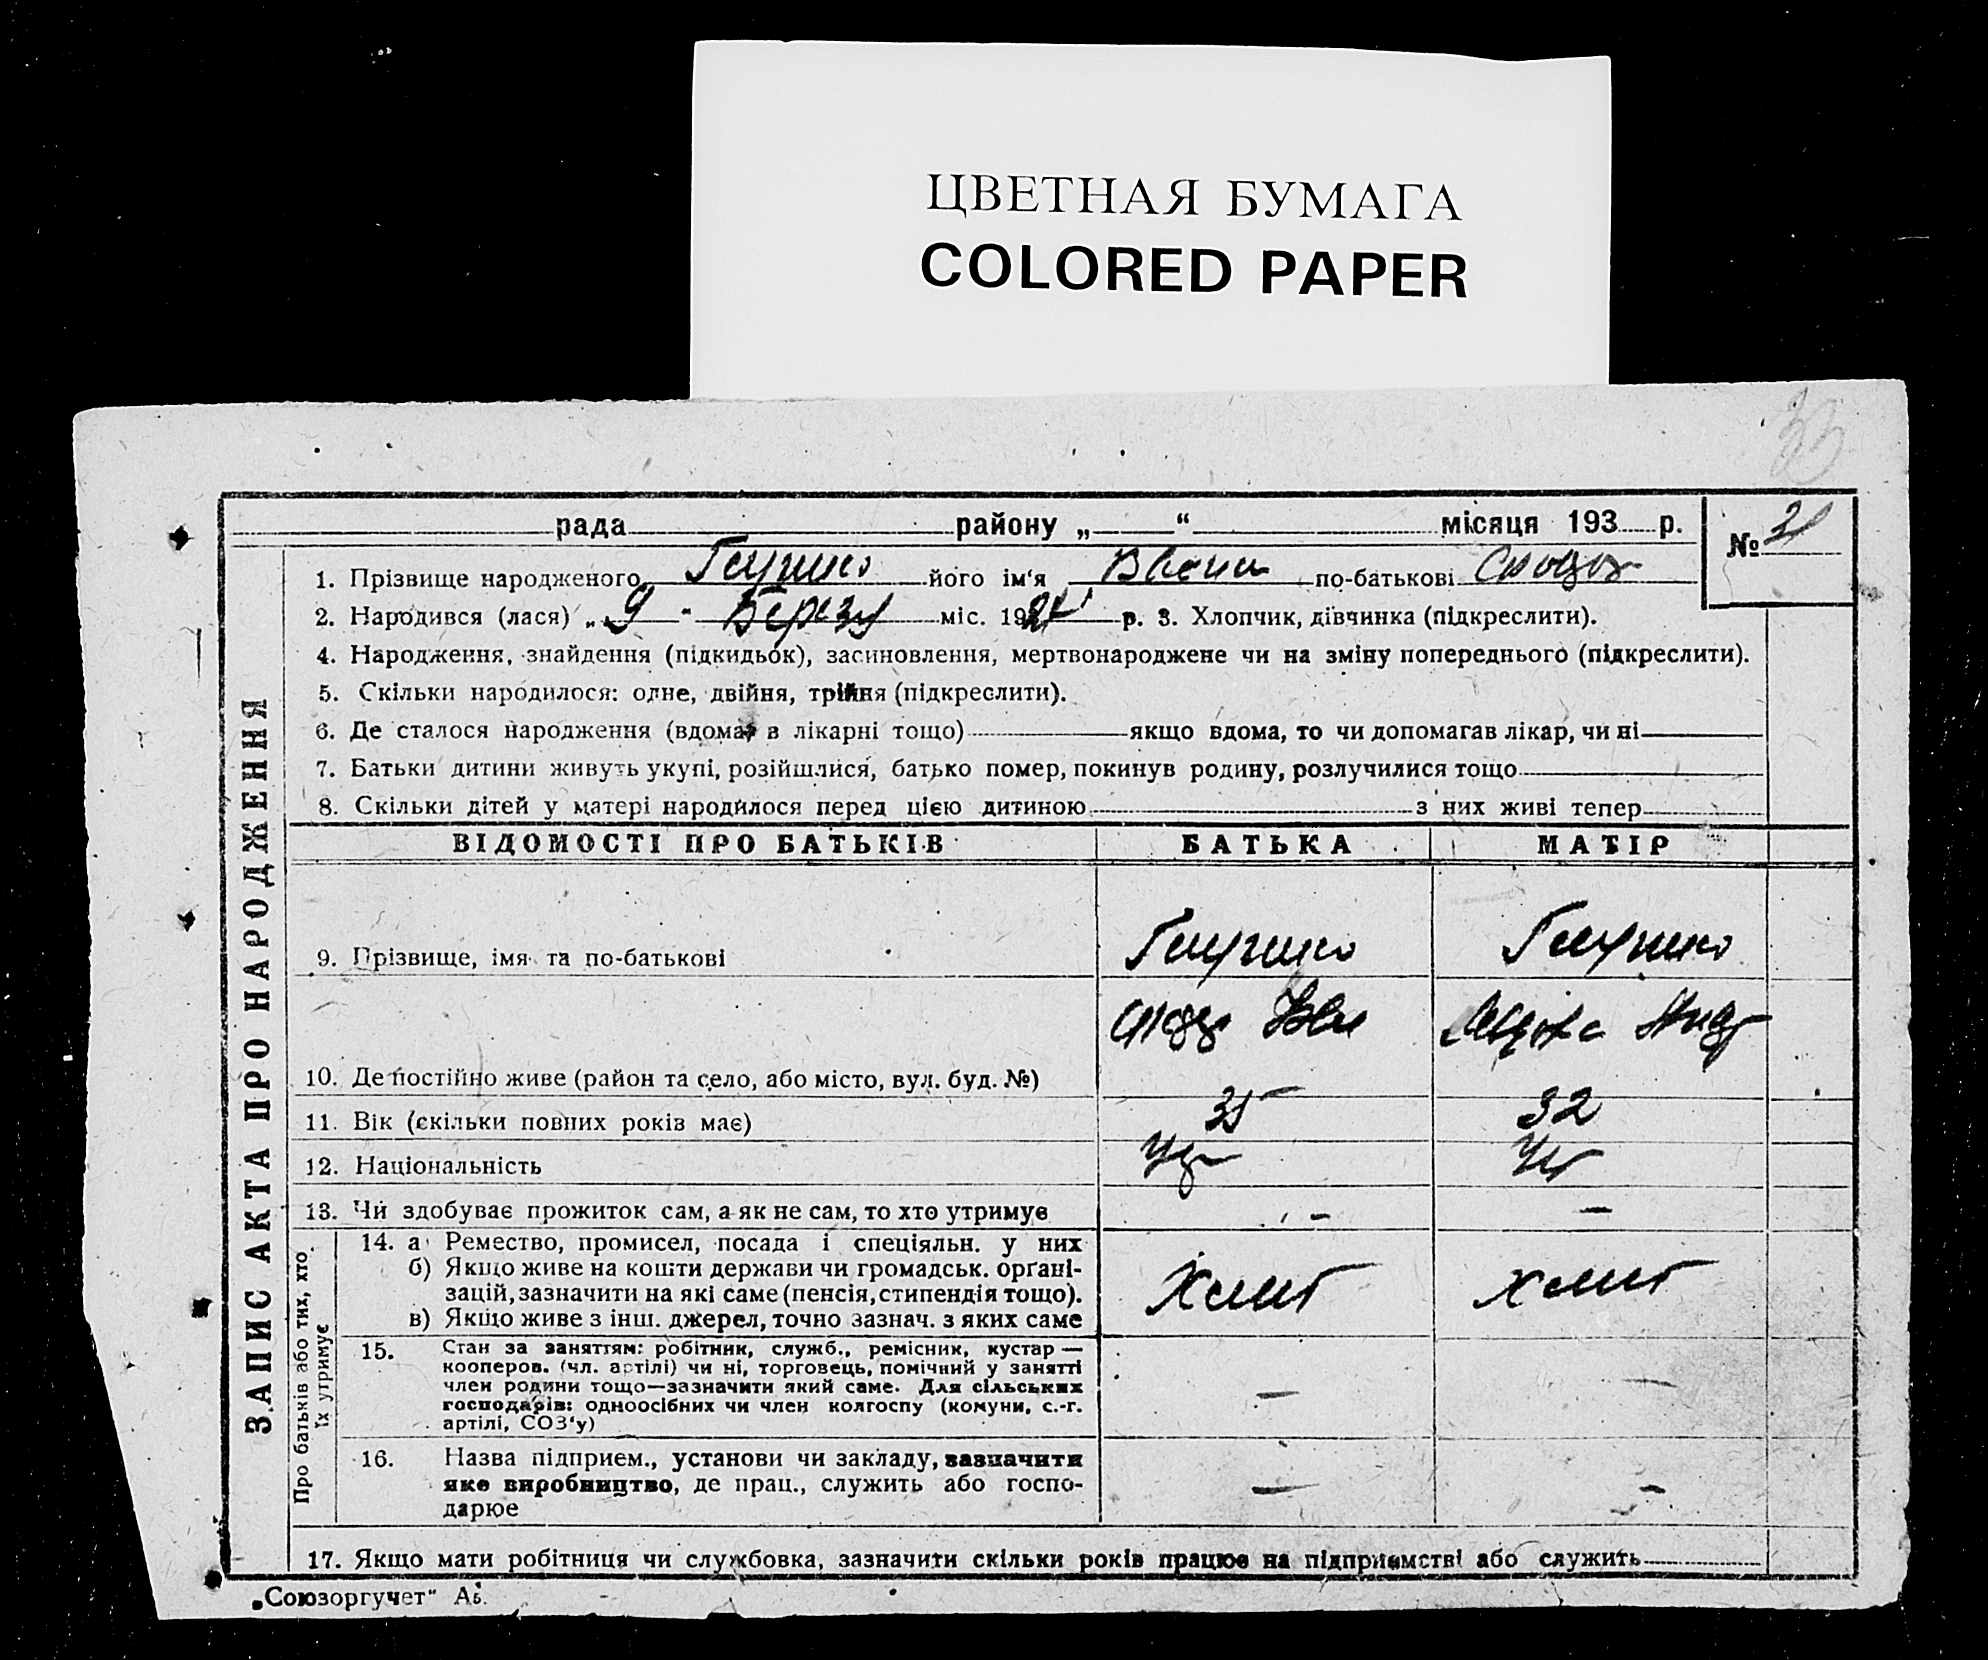 ЦВЕТНАЯ БУМАГА
COLORED PAPER
33
рада району „ “ місяця 193 р.
№ 31
1. Прізвище народженого його ім'я по-батькові
2. Народився (лася) „ 9 " Березн міс. 19 р. 3. Хлопчик, дівчинка (підкреслити).
4. Народження, знайдення (підкидьок), засиновлення, мертвонароджене чи на зміну попереднього (підкреслити).
5. Скільки народилося: одне, двійня, трійня (підкреслити).
6. Де сталося народження (вдома, в лікарні тощо) якщо вдома, то чи допомагав лікар, чи ні
7. Батьки дитини живуть укупі, розійшлися, батько помер, покинув родину, розлучилися тощо
8. Скільки дітей у матері народилося перед цією дитиною з них живі тепер
ВІДОМОСТІ ПРО БАТЬКІВ БАТЬКА МАТІР
9. Прізвище, імя та по-батькові
10. Де постійно живе (район та село, або місто, вул. буд. №)
11. Вік (скільки повних років має) 35 32
12. Національність Укр Ук
13. Чи здобуває прожиток сам, а як не сам, то хто утримує - -
14. а Ремество, промисел, посада і спеціяльн. у них
б) Якщо живе на кошти держави чи громадськ. орґані-
зацій, зазначити на які саме (пенсія, стипендія тощо).
в) Якщо живе з інш. джерел, точно зазнач. з яких саме
15. Стан за заняттям: робітник, служб., ремісник, кустар —
кооперов. (чл. артілі) чи ні, торговець, помічний у занятті
член родини тощо—зазначити який саме. Для сільських
господарів: одноосібних чи член колгоспу (комуни, с.-г.
артілі, СОЗ'у) — —
16. Назва підприєм., установи чи закладу, зазначити
яке виробництво, де прац., служить або госпо-
дарює — -
17. Якщо мати робітниця чи службовка, зазначити скільки років працює на підприємстві або служить
ЗАПИС АКТА ПРО НАРОДЖЕННЯ
Про батьків або тих, хто
їх утримує
„Союзоргучет"